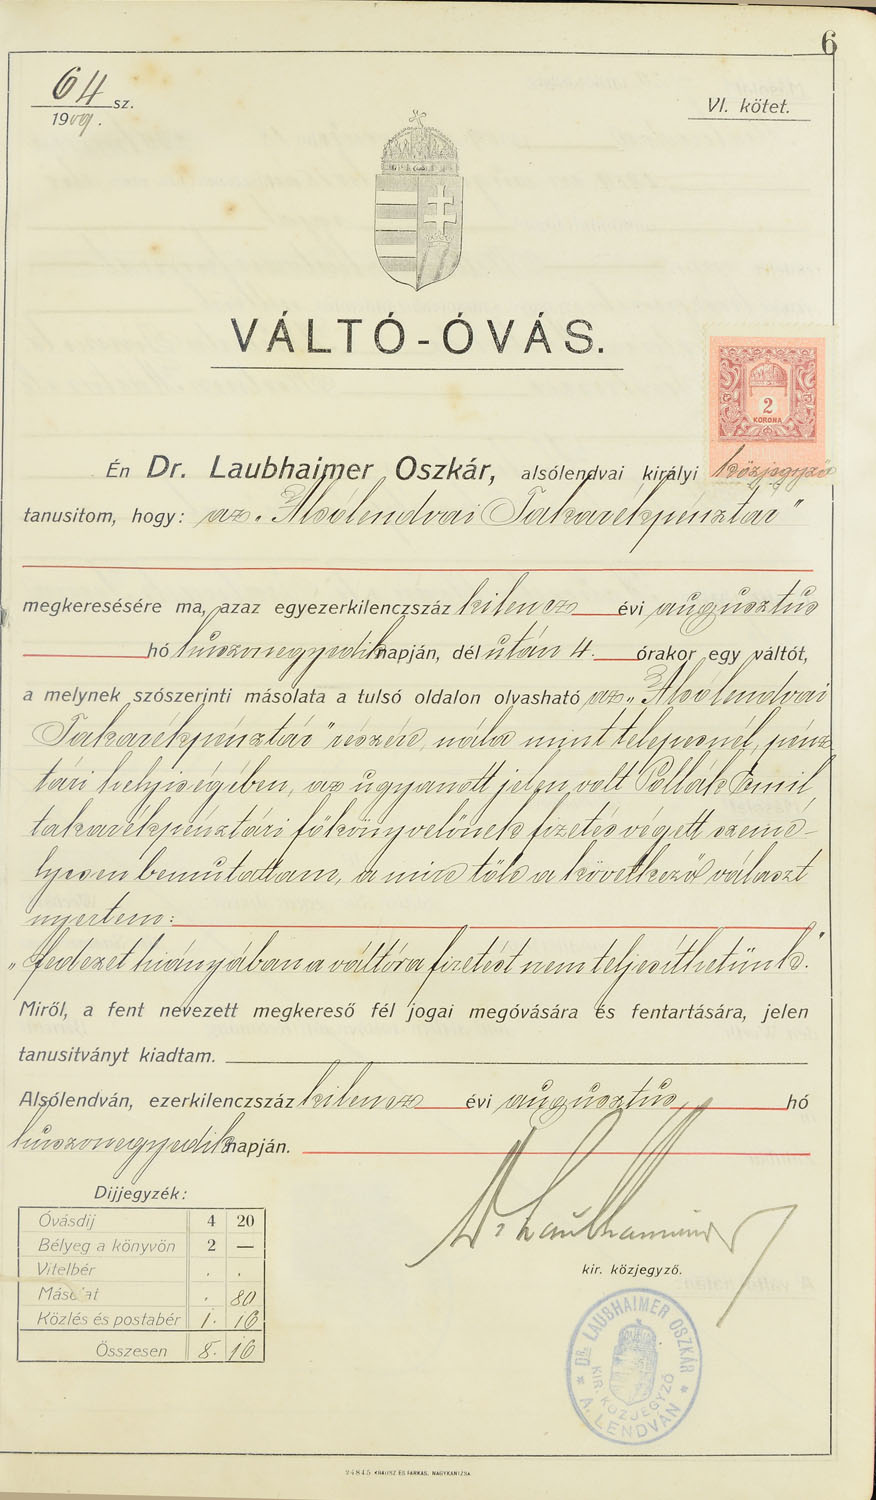 6
64 sz.
1909.
VI. kötet.
VÁLTÓ-ÓVÁS.
2
KORONA
Én Dr. Laubhaimer Oszkár, alsólendvai királyi közjegyző
tanusitom, hogy: az „Alsólendvai Takarékpénztár"
megkeresésére ma, azaz egyezerkilenczszáz kilencz évi augusztus
hó huszonegyedik napján, dél után 4. órakor egy váltót,
a melynek szószerinti másolata a tulsó oldalon olvasható az „Alsólendvai
Takarékpénztár" részére, nála mint telepesnél, pénz
tári helyiségében, az ugyanott jelen volt Pollák Emil
takarékpénztári főkönyvelőnek fizetés végett szemé-
lyesen bemutattam, a mire tőle a következő választ
nyertem:
„fedezet hiányában a váltóra fizetést nem teljesíthetünk."
Miről, a fent nevezett megkereső fél jogai megóvására és fentartására, jelen
tanusitványt kiadtam.
Alsólendván, ezerkilenczszáz kilencz évi augusztus hó
huszonegyedik napján.
Dijjegyzék:
Óvásdij 4 20
Bélyeg a könyvön 2 —
Vitelbér . .
Másolat . 80
Közlés és postabér 1. 16
Összesen 8. 16
Dr Laubhaimer
kir. közjegyző.
DR. LAUBHAIMER OSZKÁR
KIR. KÖZJEGYZŐ
A. LENDVÁN
24845 KRAUSZ ÉS FARKAS, NAGYKANIZSA